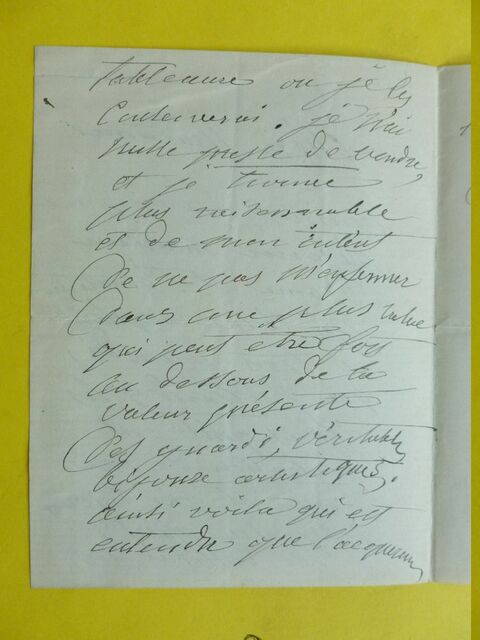 tableaux ou je les
conserverai. je n'ai
nulle presse de vendre,
et je trouve
plus raisonnable
et de mon intérêt
de ne pas m'enfermer
dans une plus value
qui peut être fort
au dessous de la
valeur présente
des guardi, véritables
bijoux artistiques.
ainsi voila qui est
entendu que l'acquereur